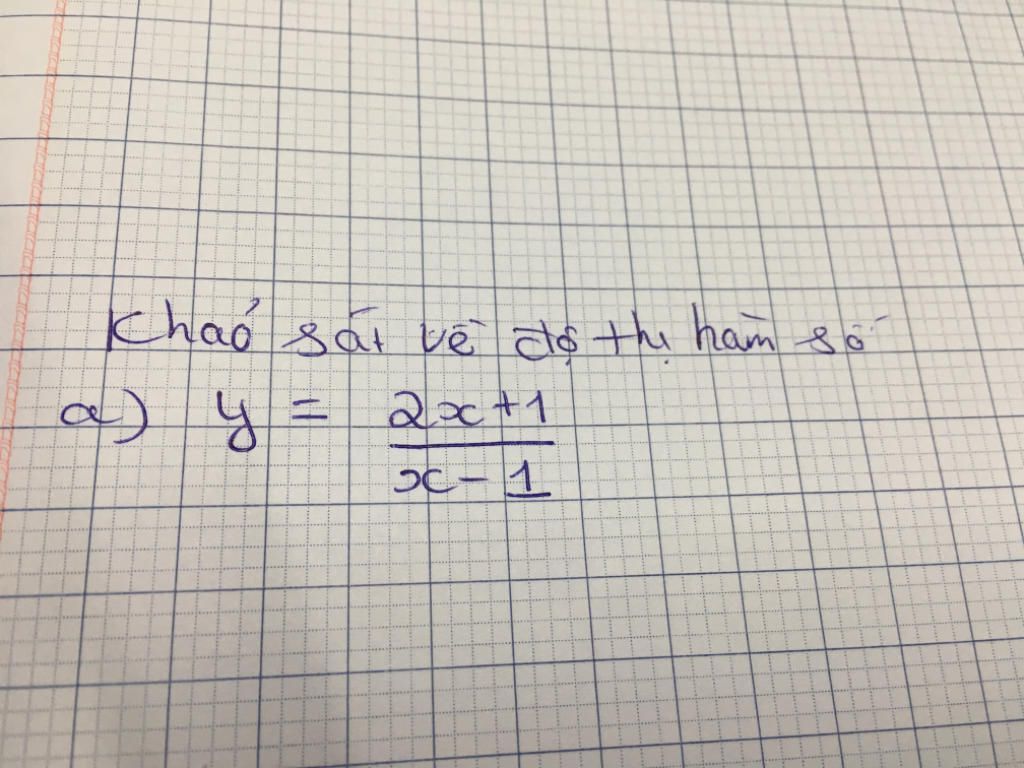 Khaỏ sát vẽ đồ thị hàm số
a) y = \frac{2x+1}{x-1}